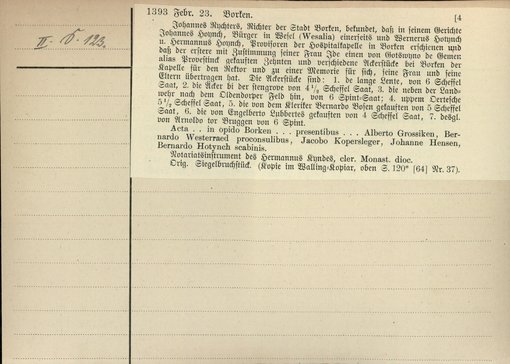 II. 5. 123.
1393 Febr. 23. Borken. [4
Johannes Rychters, Richter der Stadt Borken, bekundet, daß in seinem Gerichte
Johannes Hoynck, Bürger in Wesel (Wesalia) einerseits und Wernerus Hotynch
u. Hermannus Hoynch, Provisoren der Hospitalkapelle in Borken erschienen und
daß der erstere mit Zustimmung seiner Frau Ide einen von Gotswyno de Gemen
alias Provestinck gekauften Zehnten und verschiedene Ackerstücke bei Borken der
Kapelle für den Rektor und zu einer Memorie für sich, seine Frau und seine
Eltern übertragen hat. Die Ackerstücke sind: 1. de lange Lente, von 6 Scheffel
Saat, 2. die Äcker bi der stengrove von 4 1/2 Scheffel Saat, 3. die neben der Land-
wehr nach dem Oldendorper Feld hin, von 6 Spint-Saat; 4. uppem Oertesche
5 1/2 Scheffel Saat, 5. die von dem Kleriker Bernardo Vosen gekauften von 5 Scheffel
Saat, 6. die von Engelberto Lubbertes gekauften von 4 Scheffel Saat, 7. desgl.
von Arnoldo tor Bruggen von 6 Spint.
Acta . . in opido Borken . . . presentibus . . . Alberto Grossiken, Ber-
nardo Westerraed proconsulibus, Jacobo Kopersleger, Johanne Hensen,
Bernardo Hotynch scabinis.
Notariatsinstrument des Hermannus Kyndes, cler. Monast. dioc.
Orig. Siegelbruchstück. (Kopie im Walling-Kopiar, oben S. 120* [64] Nr. 37).